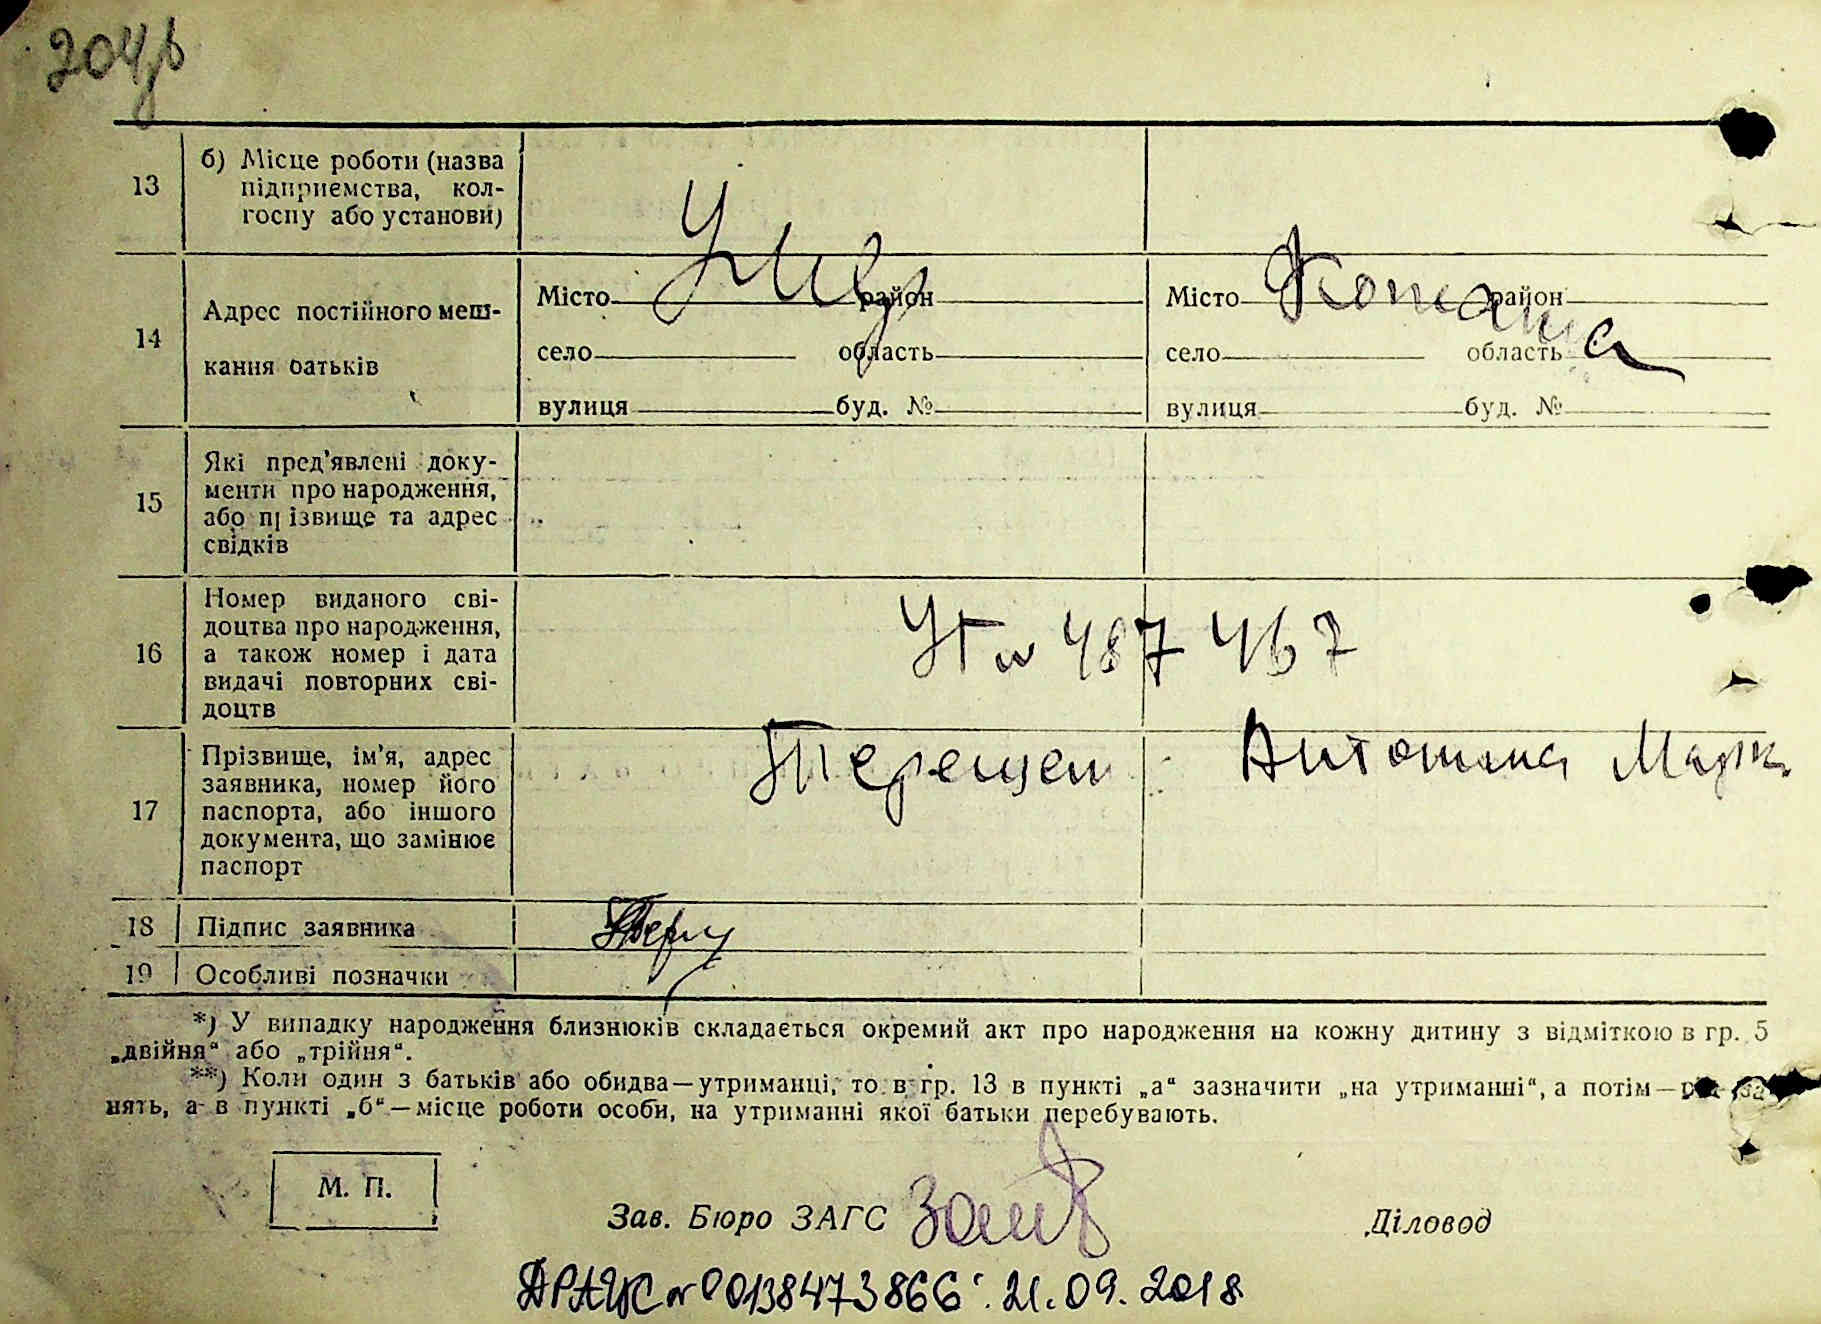 204
13
б) Місце роботи (назва
підприємства, кол-
госпу або установи)
14
Адрес постійного меш-
кання батьків
Місто район
село область
вулиця буд. №
Місто район
село область
вулиця буд. №
15
Які пред'явлені доку-
менти про народження,
або прізвище та адрес
свідків
16
Номер виданого сві-
доцтва про народження,
а також номер і дата
видачі повторних сві-
доцтв
№ 487467
17
Прізвище, ім'я, адрес
заявника, номер його
паспорта, або іншого
документа, що замінює
паспорт
Терещен Антонина
18 Підпис заявника
19 Особливі позначки
*) У випадку народження близнюків складається окремий акт про народження на кожну дитину з відміткою в гр. 5
„двійня“ або „трійня“.
**) Коли один з батьків або обидва—утриманці, то в гр. 13 в пункті „а“ зазначити „на утриманні“, а потім—
нять, а в пункті „б“—місце роботи особи, на утриманні якої батьки перебувають.
М. П.
Зав. Бюро ЗАГС
Діловод
ДРАЦС № 00138473866 21.09.2018